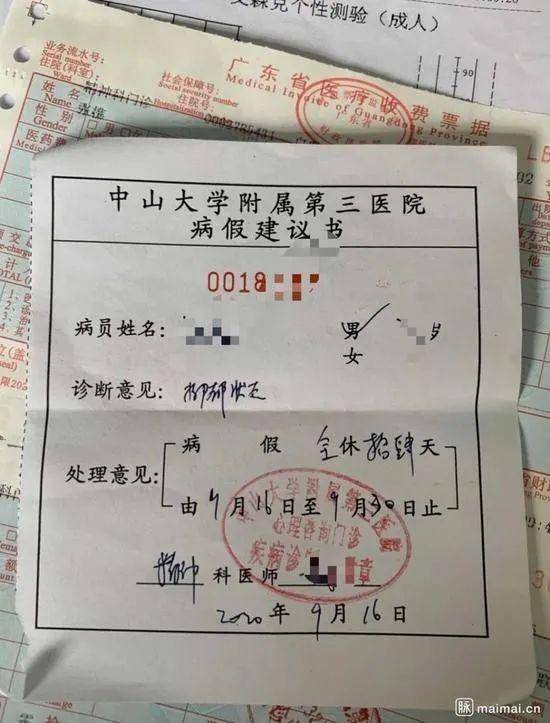 艾森克个性测验(成人)
90
业务流水号:
Serial number
住院(科室)
Ward
精神科门诊
社会保障号:
Social security number
Hospitalization
广东省医疗收费票据
Medical Invoice of Guangdong Province
姓名
Name
性别
Gender
男
医药费
Medical
中山大学附属第三医院
病假建议书
0018
病员姓名:
男
岁
女
诊断意见:抑郁状态
处理意见:
病假 全休拾肆天
由9月16日至9月30日止
中山大学附属第三医院
心理咨询门诊
疾病诊断
章
精神科医师
2020年9月16日
脉 maimai.cn